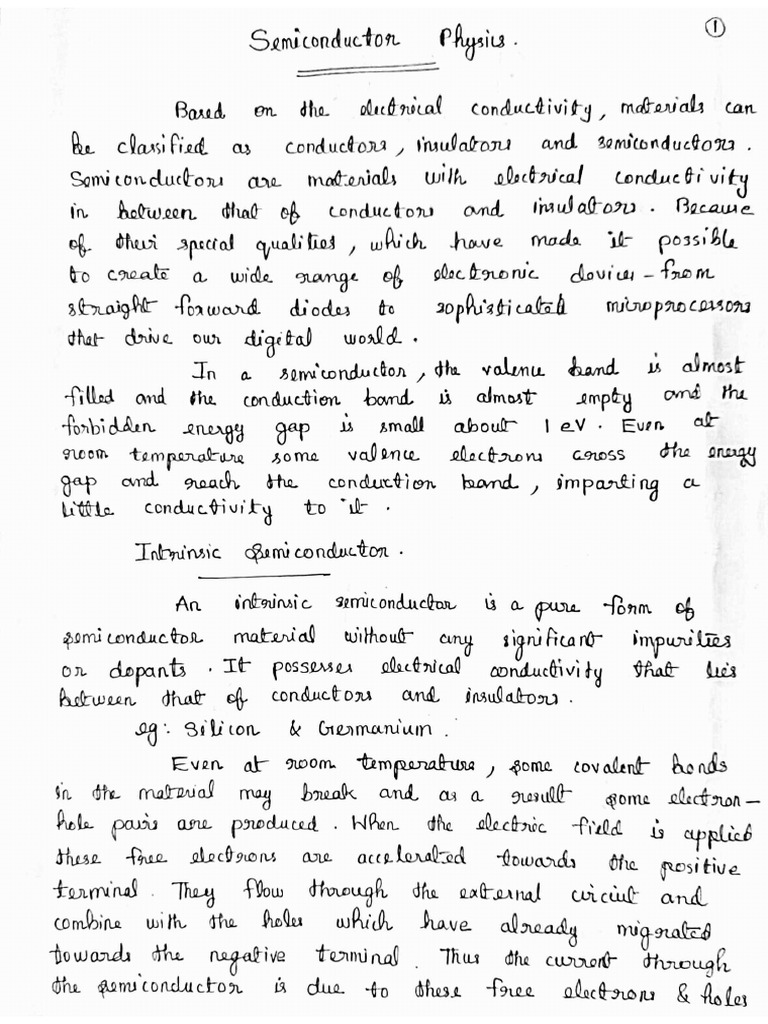 Semiconductor Physics.
1
Based on the electrical conductivity, materials can
be classified as conductors, insulators and semiconductors.
Semiconductors are materials with electrical conductivity
in between that of conductors and insulators. Because
of their special qualities, which have made it possible
to create a wide range of electronic devices - from
straight forward diodes to sophisticated microprocessors
that drive our digital world.
In a semiconductor, the valence band is almost
filled and the conduction band is almost empty and the
forbidden energy gap is small about 1 eV. Even at
room temperature some valence electrons cross the energy
gap and reach the conduction band, imparting a
little conductivity to it.
Intrinsic Semiconductor.
An intrinsic semiconductor is a pure form of
semiconductor material without any significant impurities
or dopants. It possesses electrical conductivity that lies
between that of conductors and insulators.
eg: Silicon & Germanium.
Even at room temperature, some covalent bonds
in the material may break and as a result some electron-
hole pairs are produced. When the electric field is applied
these free electrons are accelerated towards the positive
terminal. They flow through the external circiut and
combine with the holes which have already migrated
towards the negative terminal. Thus the current through
the semiconductor is due to these free electrons & holes